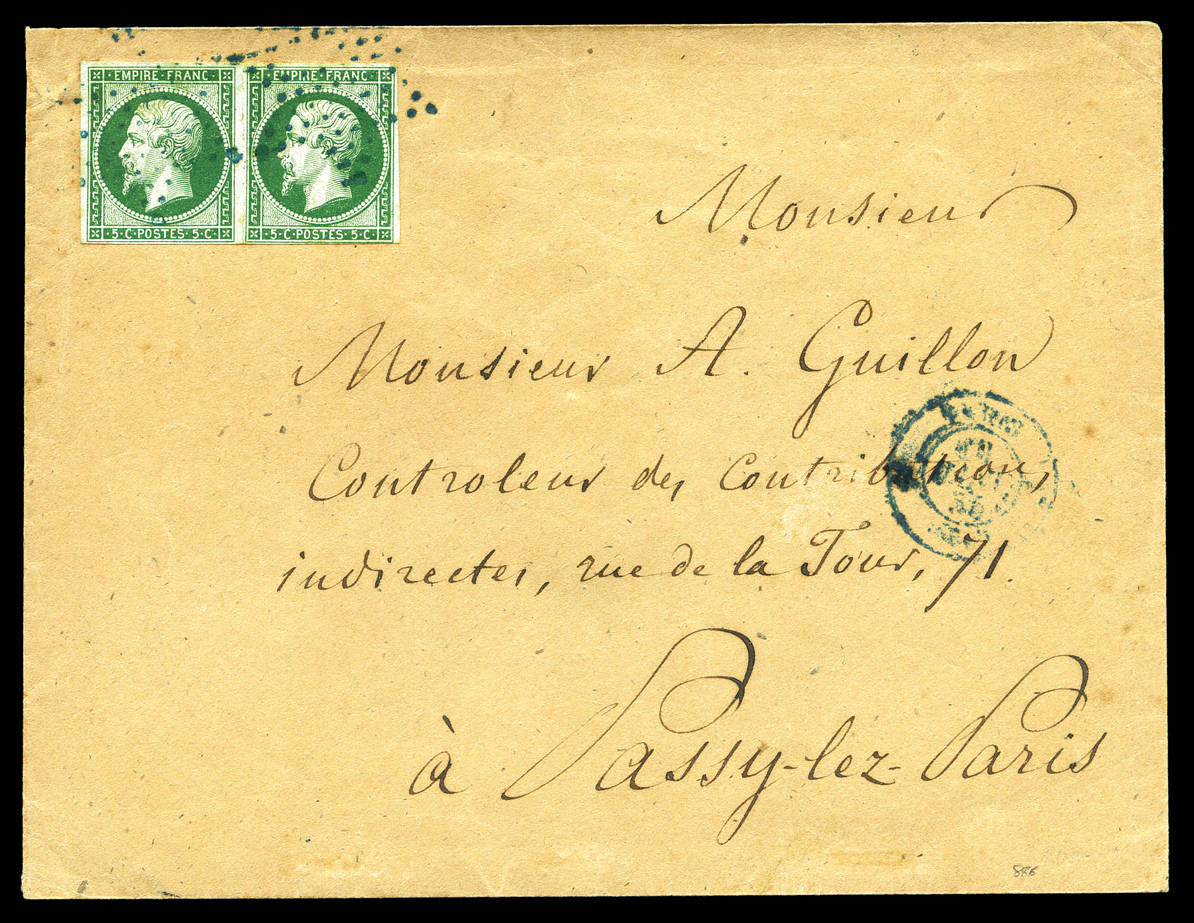 EMPIRE·FRANC· EMPIRE·FRANC·
·5·C·POSTES·5·C· ·5·C·POSTES·5·C·
Monsieur
Monsieur A. Guillon
Controleur des Contributions
indirectes, rue de la Tour, 71.
à Passy-lez-Paris
PARIS
886